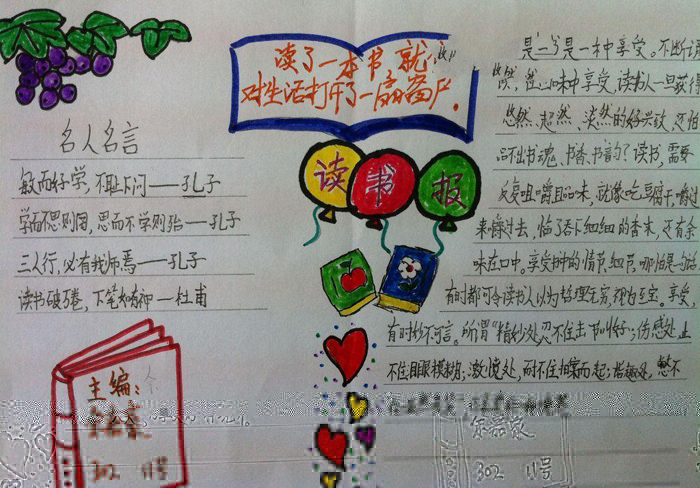 读了一本书 就
对生活打开了一扇窗户.
读书报
名人名言
敏而好学, 不耻下问——孔子
学而不思则罔, 思而不学则殆——孔子
三人行, 必有我师焉——孔子
读书破万卷, 下笔如有神—杜甫
主编:
302 11号
是一种享受。不断
味中享受, 读书人一旦获得
悠然、超然、淡然的好兴致, 还怕
品不出书魂、书香、书韵? 读书, 需要
反复咀嚼且品味, 就像吃豆腐干, 嚼过
来嚼过去, 临了吞下细细的香末, 还有余
味在口中。享受书中的情节、细节, 哪怕是一句话
有时都可令读书人以为哲理无穷, 视为至宝。享受
有时妙不可言。所谓"精妙处忍不住击节叫好; 伤感处止
不住眼眼模糊; 激愤处, 耐不住拍案而起; 诙趣处, 憋不
302 11号